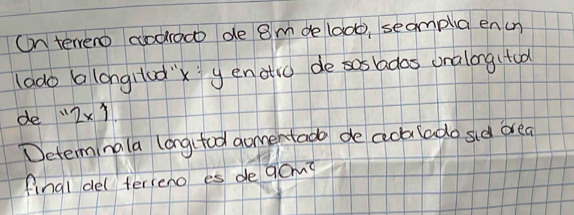 Un terreno cuadrado de 8m de lado, se amplia en un
lado la longitud "x" y en otro de sus lados una longitud
de "2x".
Determina la longitud aumentada de cada lado si el área
final del terreno es de 90m²